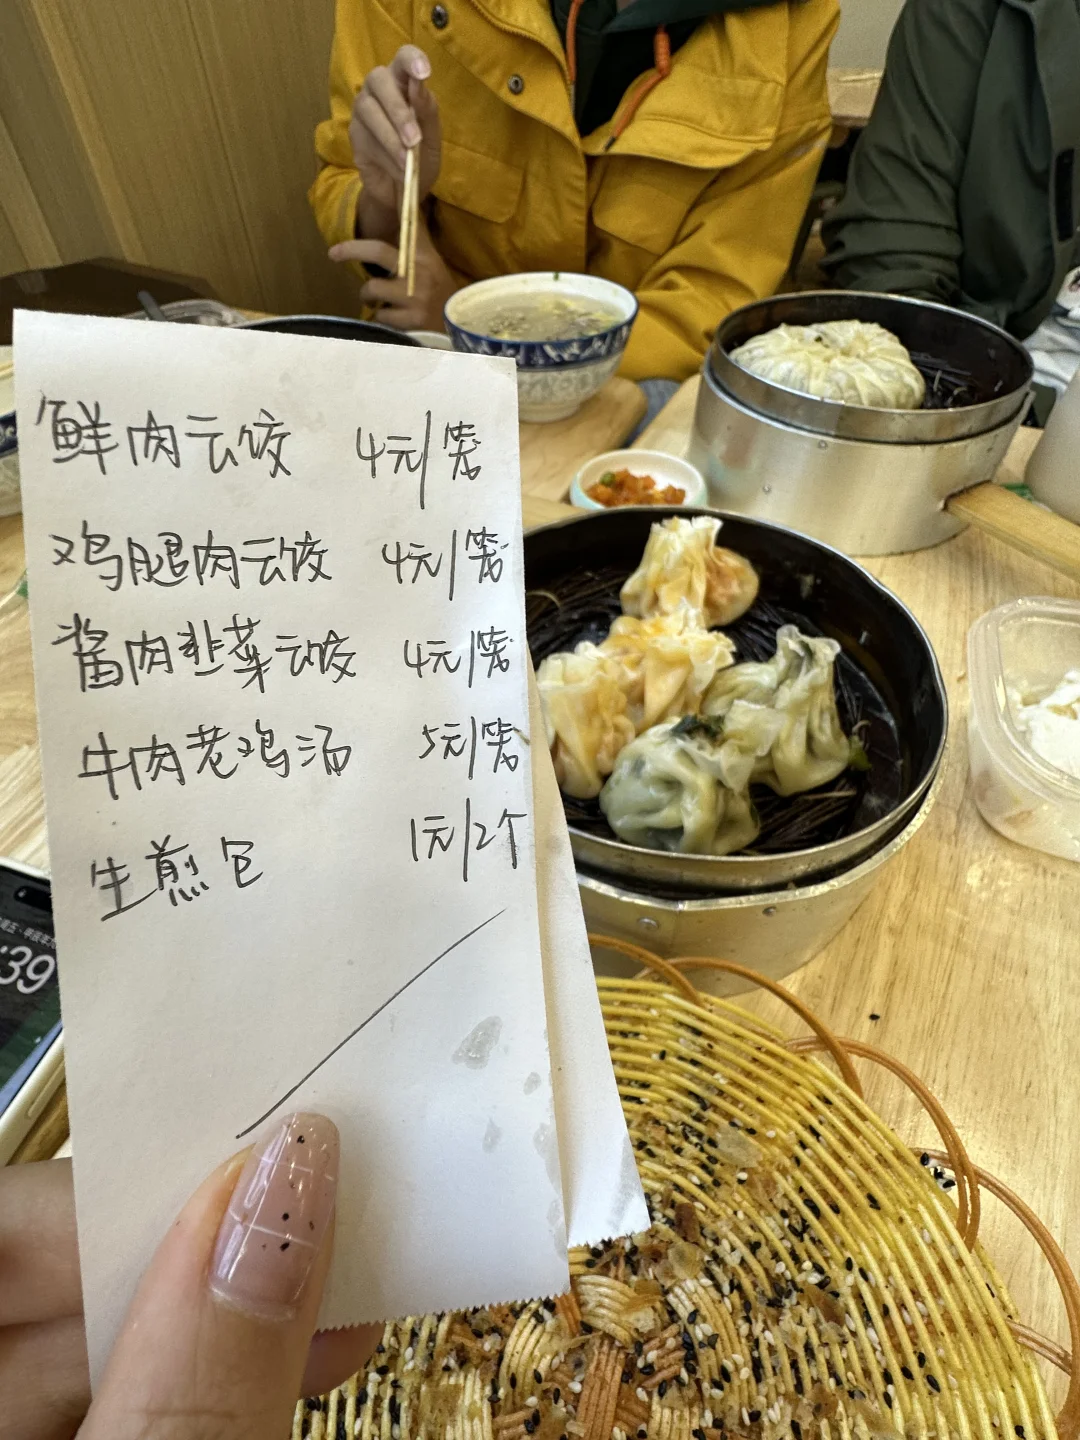 鲜肉云饺 4元/笼
鸡腿肉云饺 4元/笼
酱肉韭菜云饺 4元/笼
牛肉老鸡汤 5元/笼
生煎包 1元/2个
:39